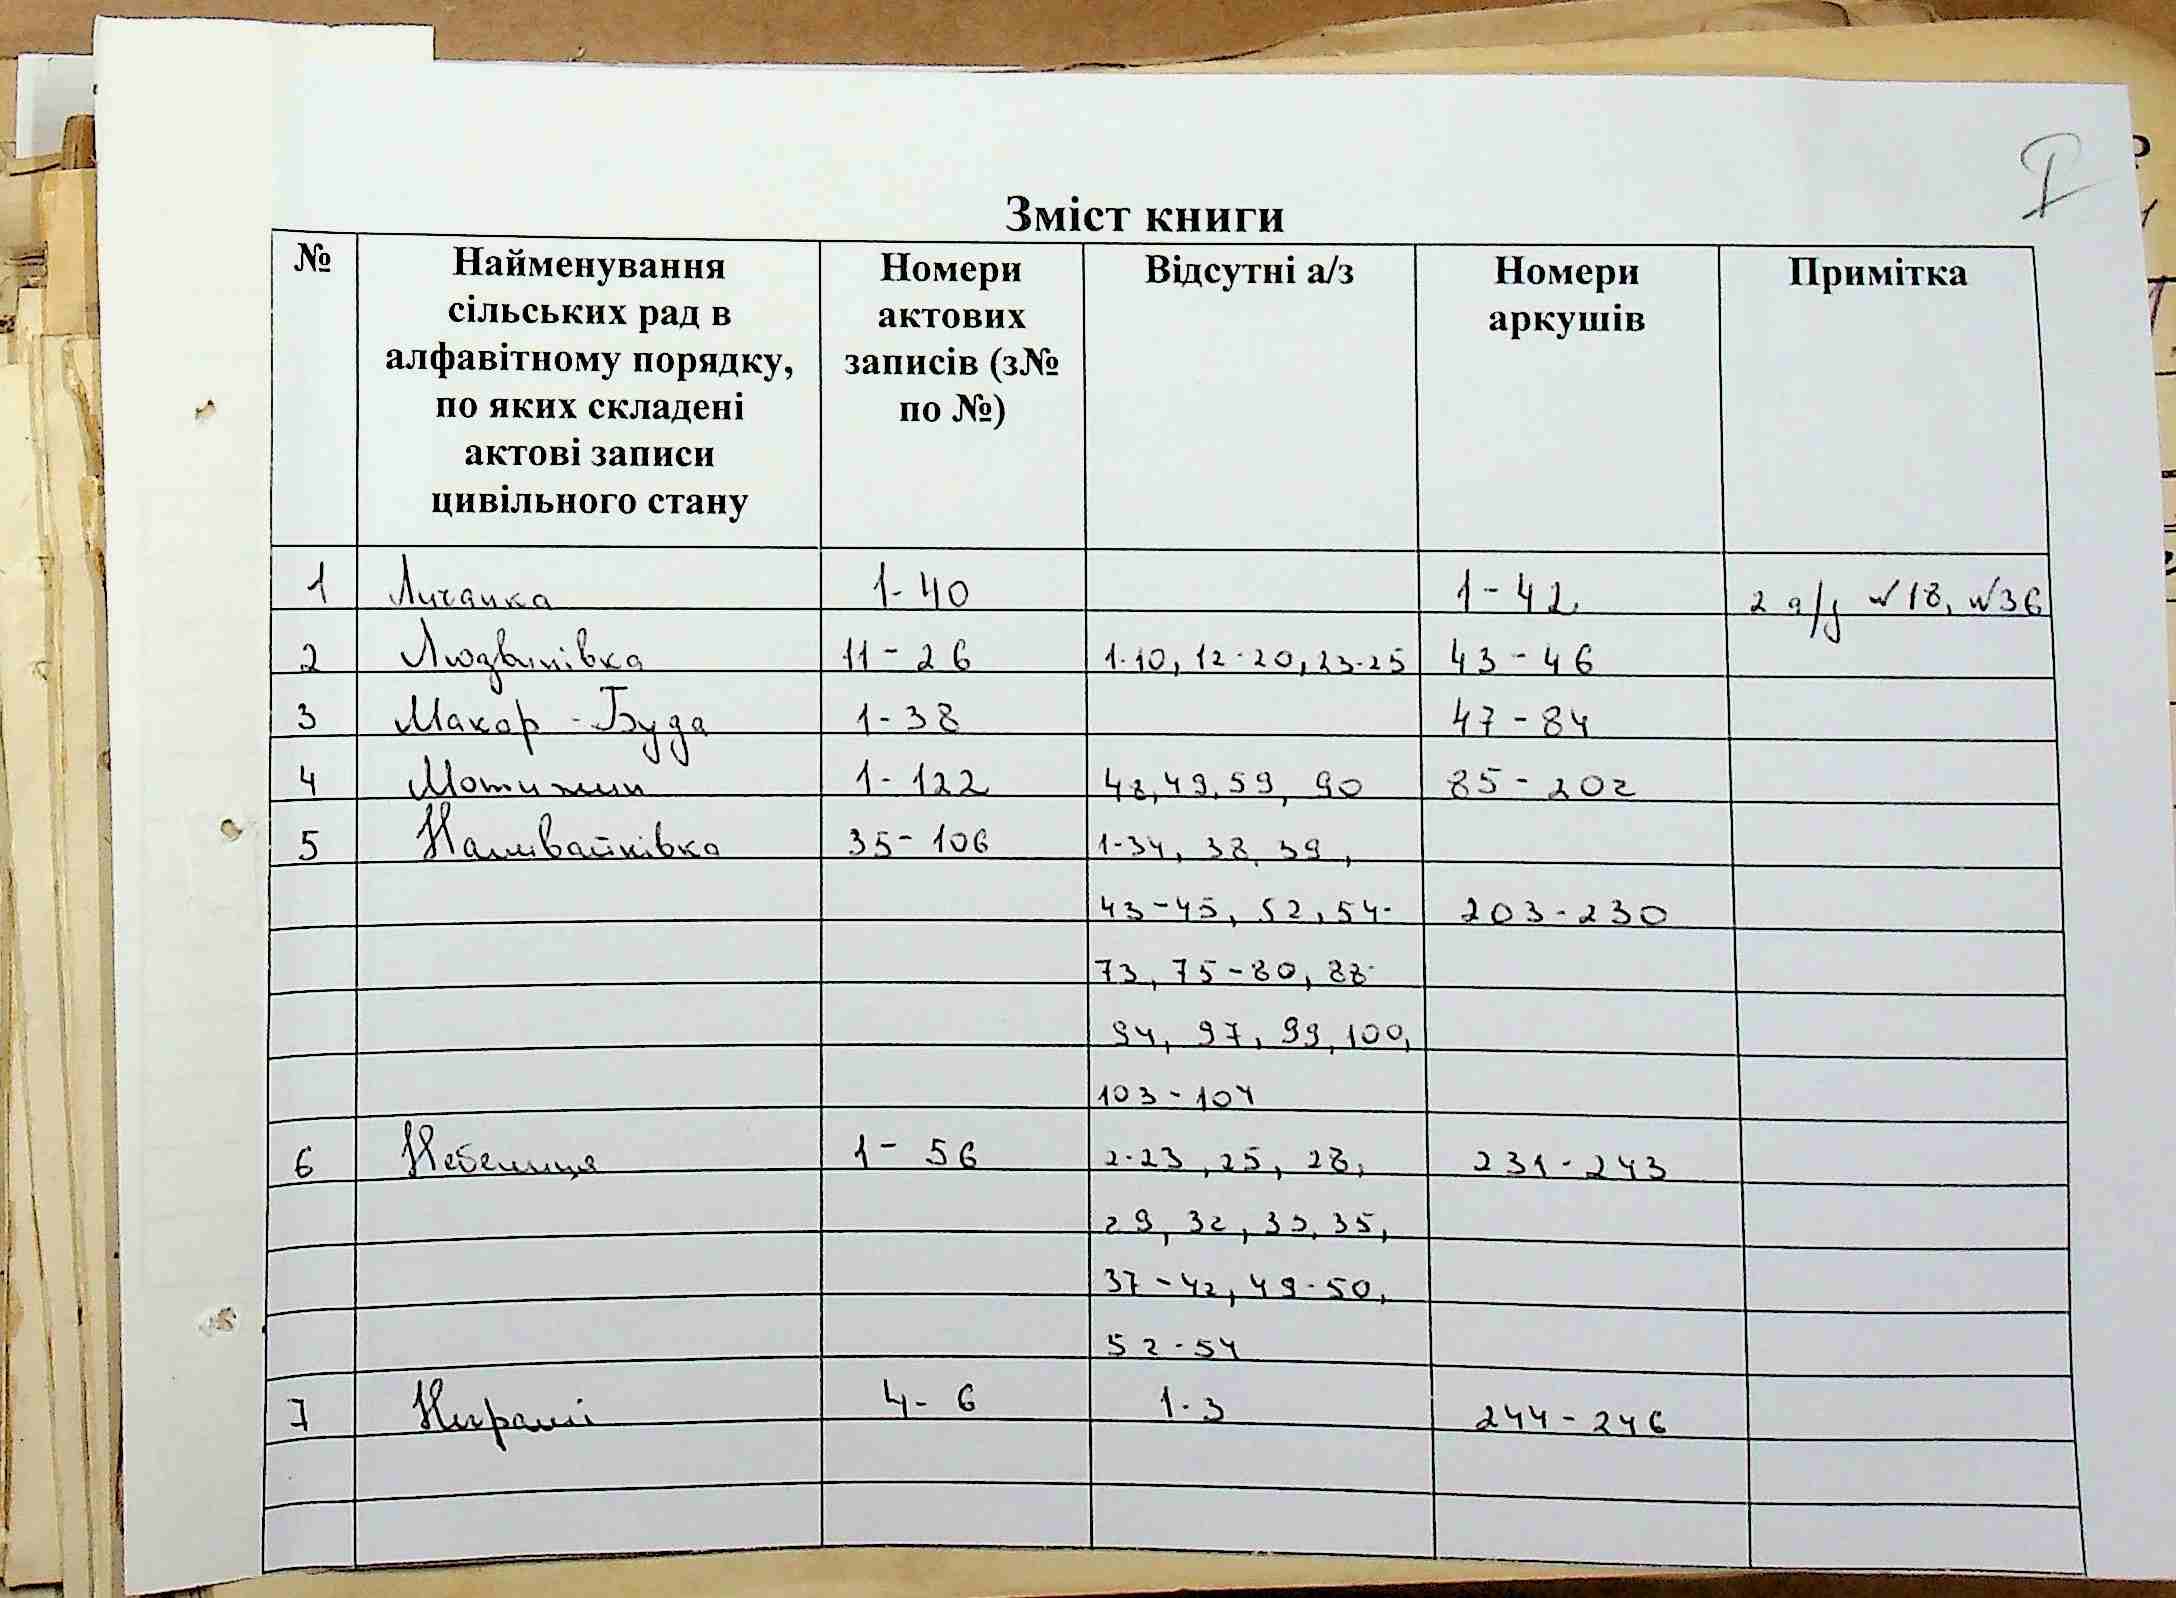 I
Зміст книги
№
Найменування
сільських рад в
алфавітному порядку,
по яких складені
актові записи
цивільного стану
Номери
актових
записів (з№
по №)
Відсутні а/з
Номери
аркушів
Примітка
1 Личанка 1-40 1-42 2 а/з №18, №36
2 Людвинівка 11-26 1-10, 12-20, 23-25 43-46
3 Макар-Буда 1-38 47-84
4 Мотижин 1-122 48, 49, 59, 90 85-202
5 Наливайківка 35-106 1-34, 38, 39,
43-45, 52, 54- 203-230
73, 75-80, 88-
94, 97, 99, 100,
103-104
6 Небелиця 1-56 2-23, 25, 28, 231-243
29, 32, 33, 35,
37-42, 49-50,
52-54
7 4-6 1-3 244-246